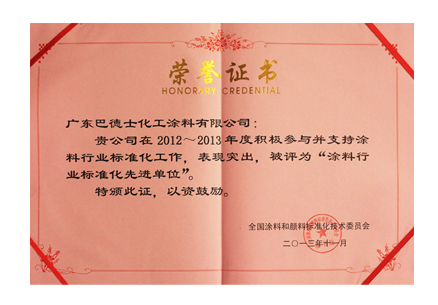 荣誉证书
HONORARY CREDENTIAL
广东巴德士化工涂料有限公司：
贵公司在2012～2013年度积极参与并支持涂
料行业标准化工作，表现突出，被评为“涂料行
业标准化先进单位”。
特颁此证，以资鼓励。
全国涂料和颜料标准化技术委员会
二〇一三年十一月